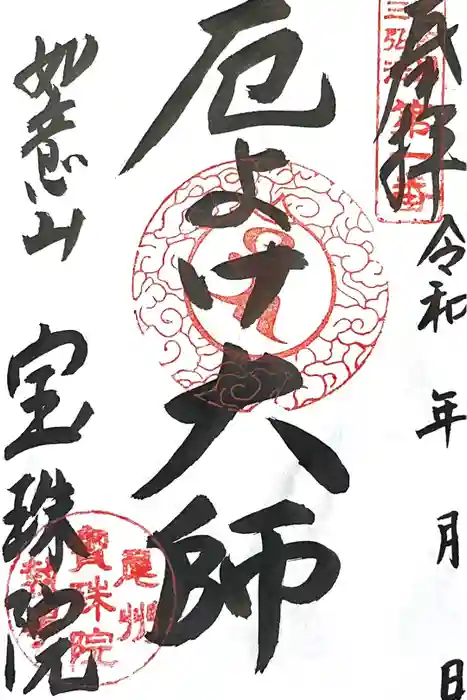 奉拝 令和 年 月 日
三弘法
第一番
厄よけ大師
如意山 宝珠院
尾州
寶珠院